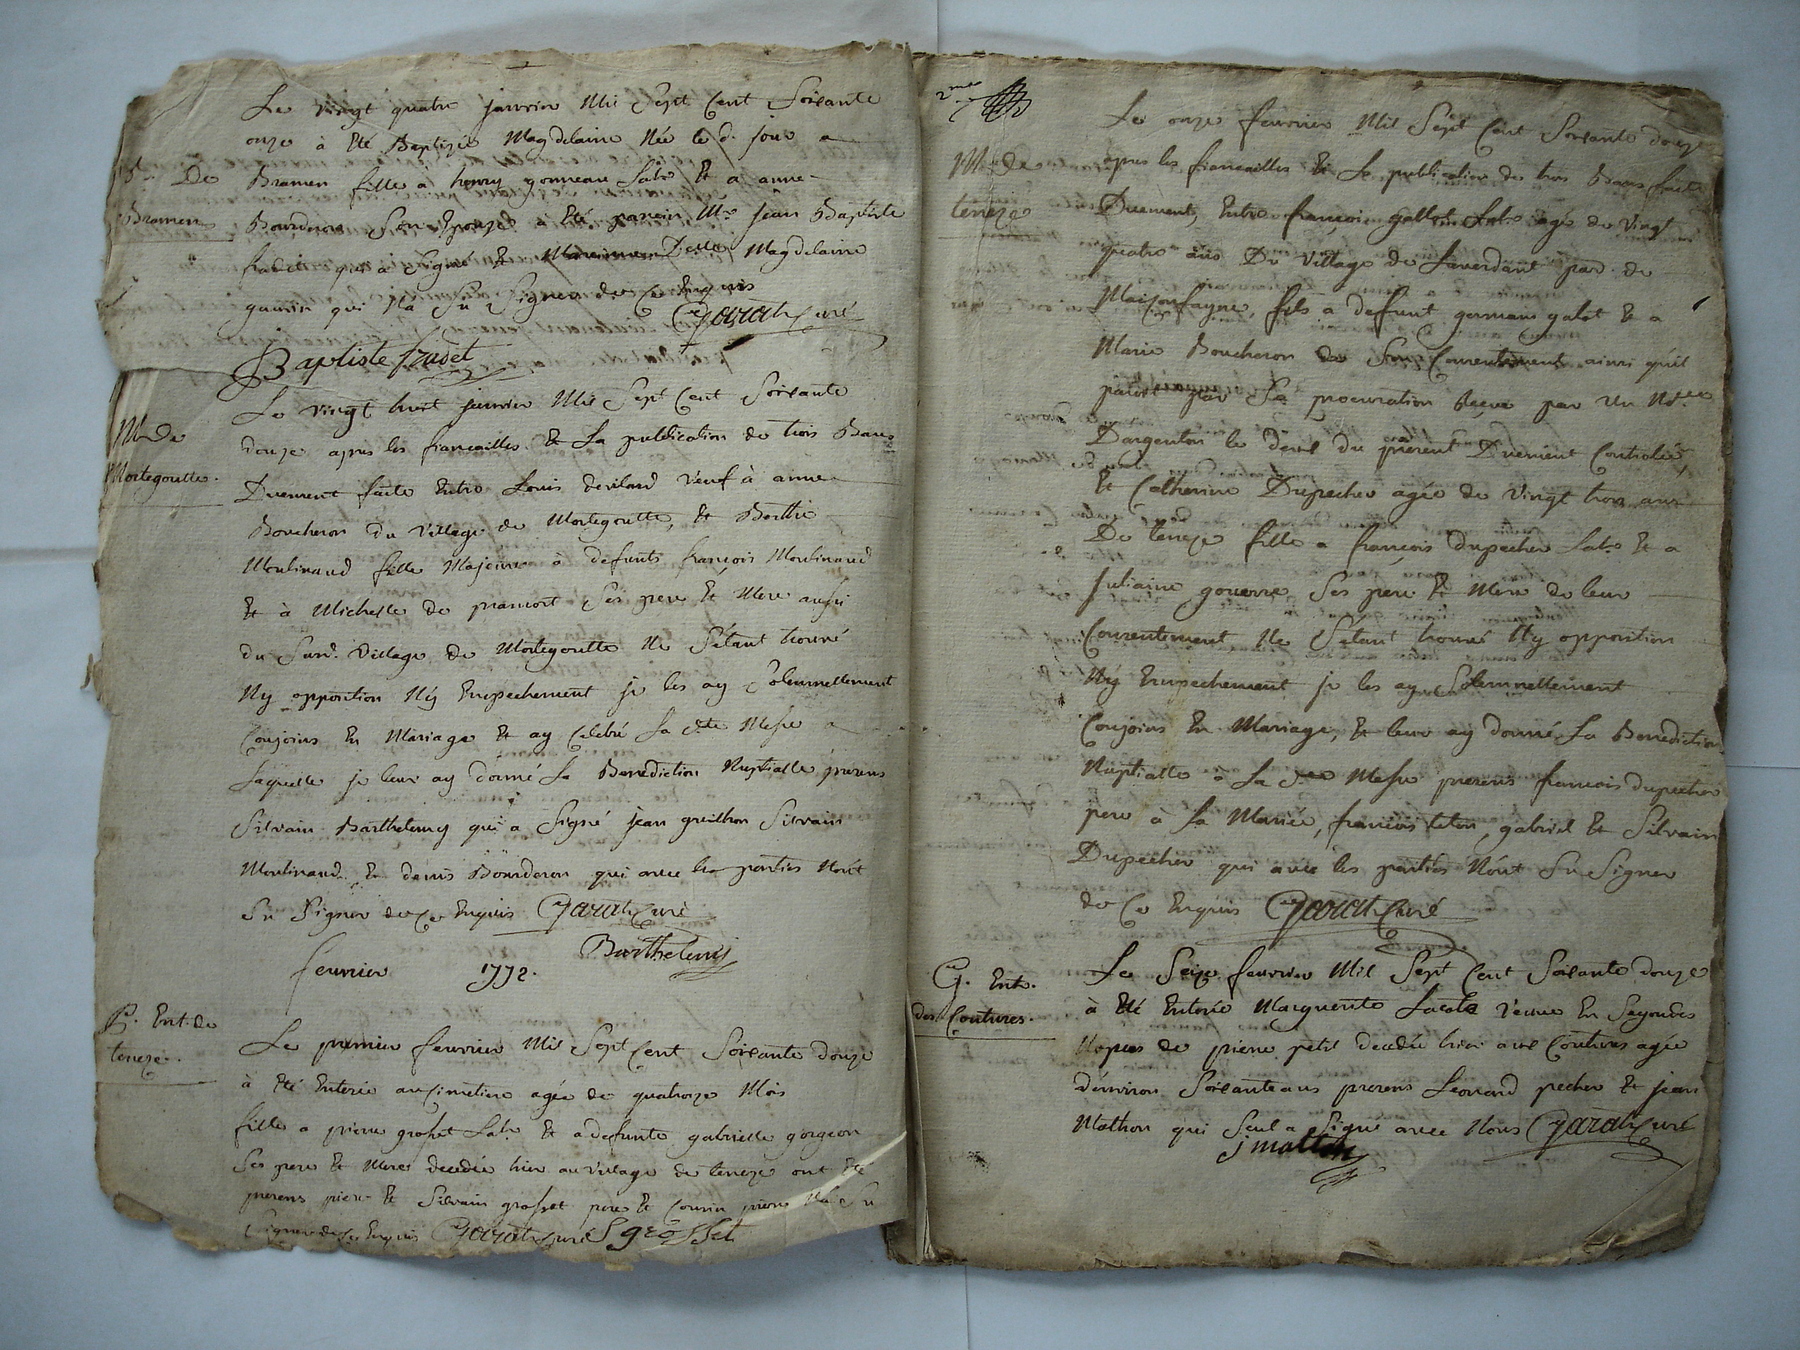 Le vingt quatre janvrier Mil Sept Cent Soixante
onze à Eté Baptizée Magdelaine Née le d. jour a
B. De
Bramen
Bramen fille à henry gonneau Labr. Et a anne
Bourderon Son Epouze a Eté parain Mr. jean Baptiste
fradet qui a Signé Et Maraine Delle Magdelaine
qui Na Su Signer de Ce Enquis
Garat Curé
Baptiste fradet
M. de
Mortegoutte.
Le vingt huit janvier Mil Sept Cent Soixante
douze apres les fiancailles Et La publication de trois Bans
Duement faite Entre Louis devilard veuf à anne
Boucheron du village de Mortegoutte, Et Berthe
Moulinaud fille Majeure à defunts françois Moulinaud
Et à Michelle de pramort Ses pere Et Mere aussi
du Susd. village de Mortegoutte Ne S'étant trouvé
Ny opposition Ny Empechement je les ay Solemnellement
Conjoins En Mariage Et ay Celebré La Ste Messe a
Laquelle je leur ay donné La Benediction Nuptialle presens
Silvain Barthelemy qui a Signé jean greilhon Silvain
Moulinaud Et denis Bourderon qui avec les parties Nont
Su Signer de Ce Enquis Garat Curé
Barthelemy
fevrier 1772.
P. Ent. de
teneze.
Le premier fevrier Mil Sept Cent Soixante douze
à Eté Enterée au Cimetiere agée de quatorze Mois
fille a pierre grosset Labr. Et a defunte gabrielle gorgeon
Ses pere Et Mere decedée hier au village de teneze ont Eté
presens pierre Et Silvain grosset pere Et Cousin pierre Na Su
Signer de Ce Enquis Garat Curé S grosset
2me
M. de
teneze
Le onze fevrier Mil Sept Cent Soixante douze
apres les fiancailles Et La publication des trois Bans faite
Duement, Entre françois gallot Labr. agé de Vingt
quatre ans Du Village de Laverdant par. de
Maisonfayne, fils a defunt germain galot Et a
Marie Boucheron de Son Consentement ainsi qu'il
paroit par Sa procuration Reçue par Un Nore
Dargenton le deux du présent Duement Controlée,
Et Catherine Dupecher agée de Vingt trois ans
De teneze fille a françois Dupecher Labr. Et a
Juliaine gouerre Ses pere Et Mere de leur
Consentement Ne S'étant trouvé Ny opposition
Ny Empechement je les ay Solemnellement
Conjoins En Mariage, Et leur ay donné La Benediction
Nuptialle a La Ste Messe presens francois dupecher
pere à La Mariée, francois teton, gabriel Et Silvain
Dupecher qui avec les parties Nont Su Signer
de Ce Enquis Garat Curé
G. Ent.
des Coutures.
Le Seize fevrier Mil Sept Cent Soixante douze
à Eté Enterée Marguerite Lacote Veuve En Segondes
Nopces de pierre petit decedée hier aux Coutures agée
d'environ Soixante ans presens Leonard pecher Et jean
Mathon qui Seul a Signé avec Nous Garat Curé
j mathon